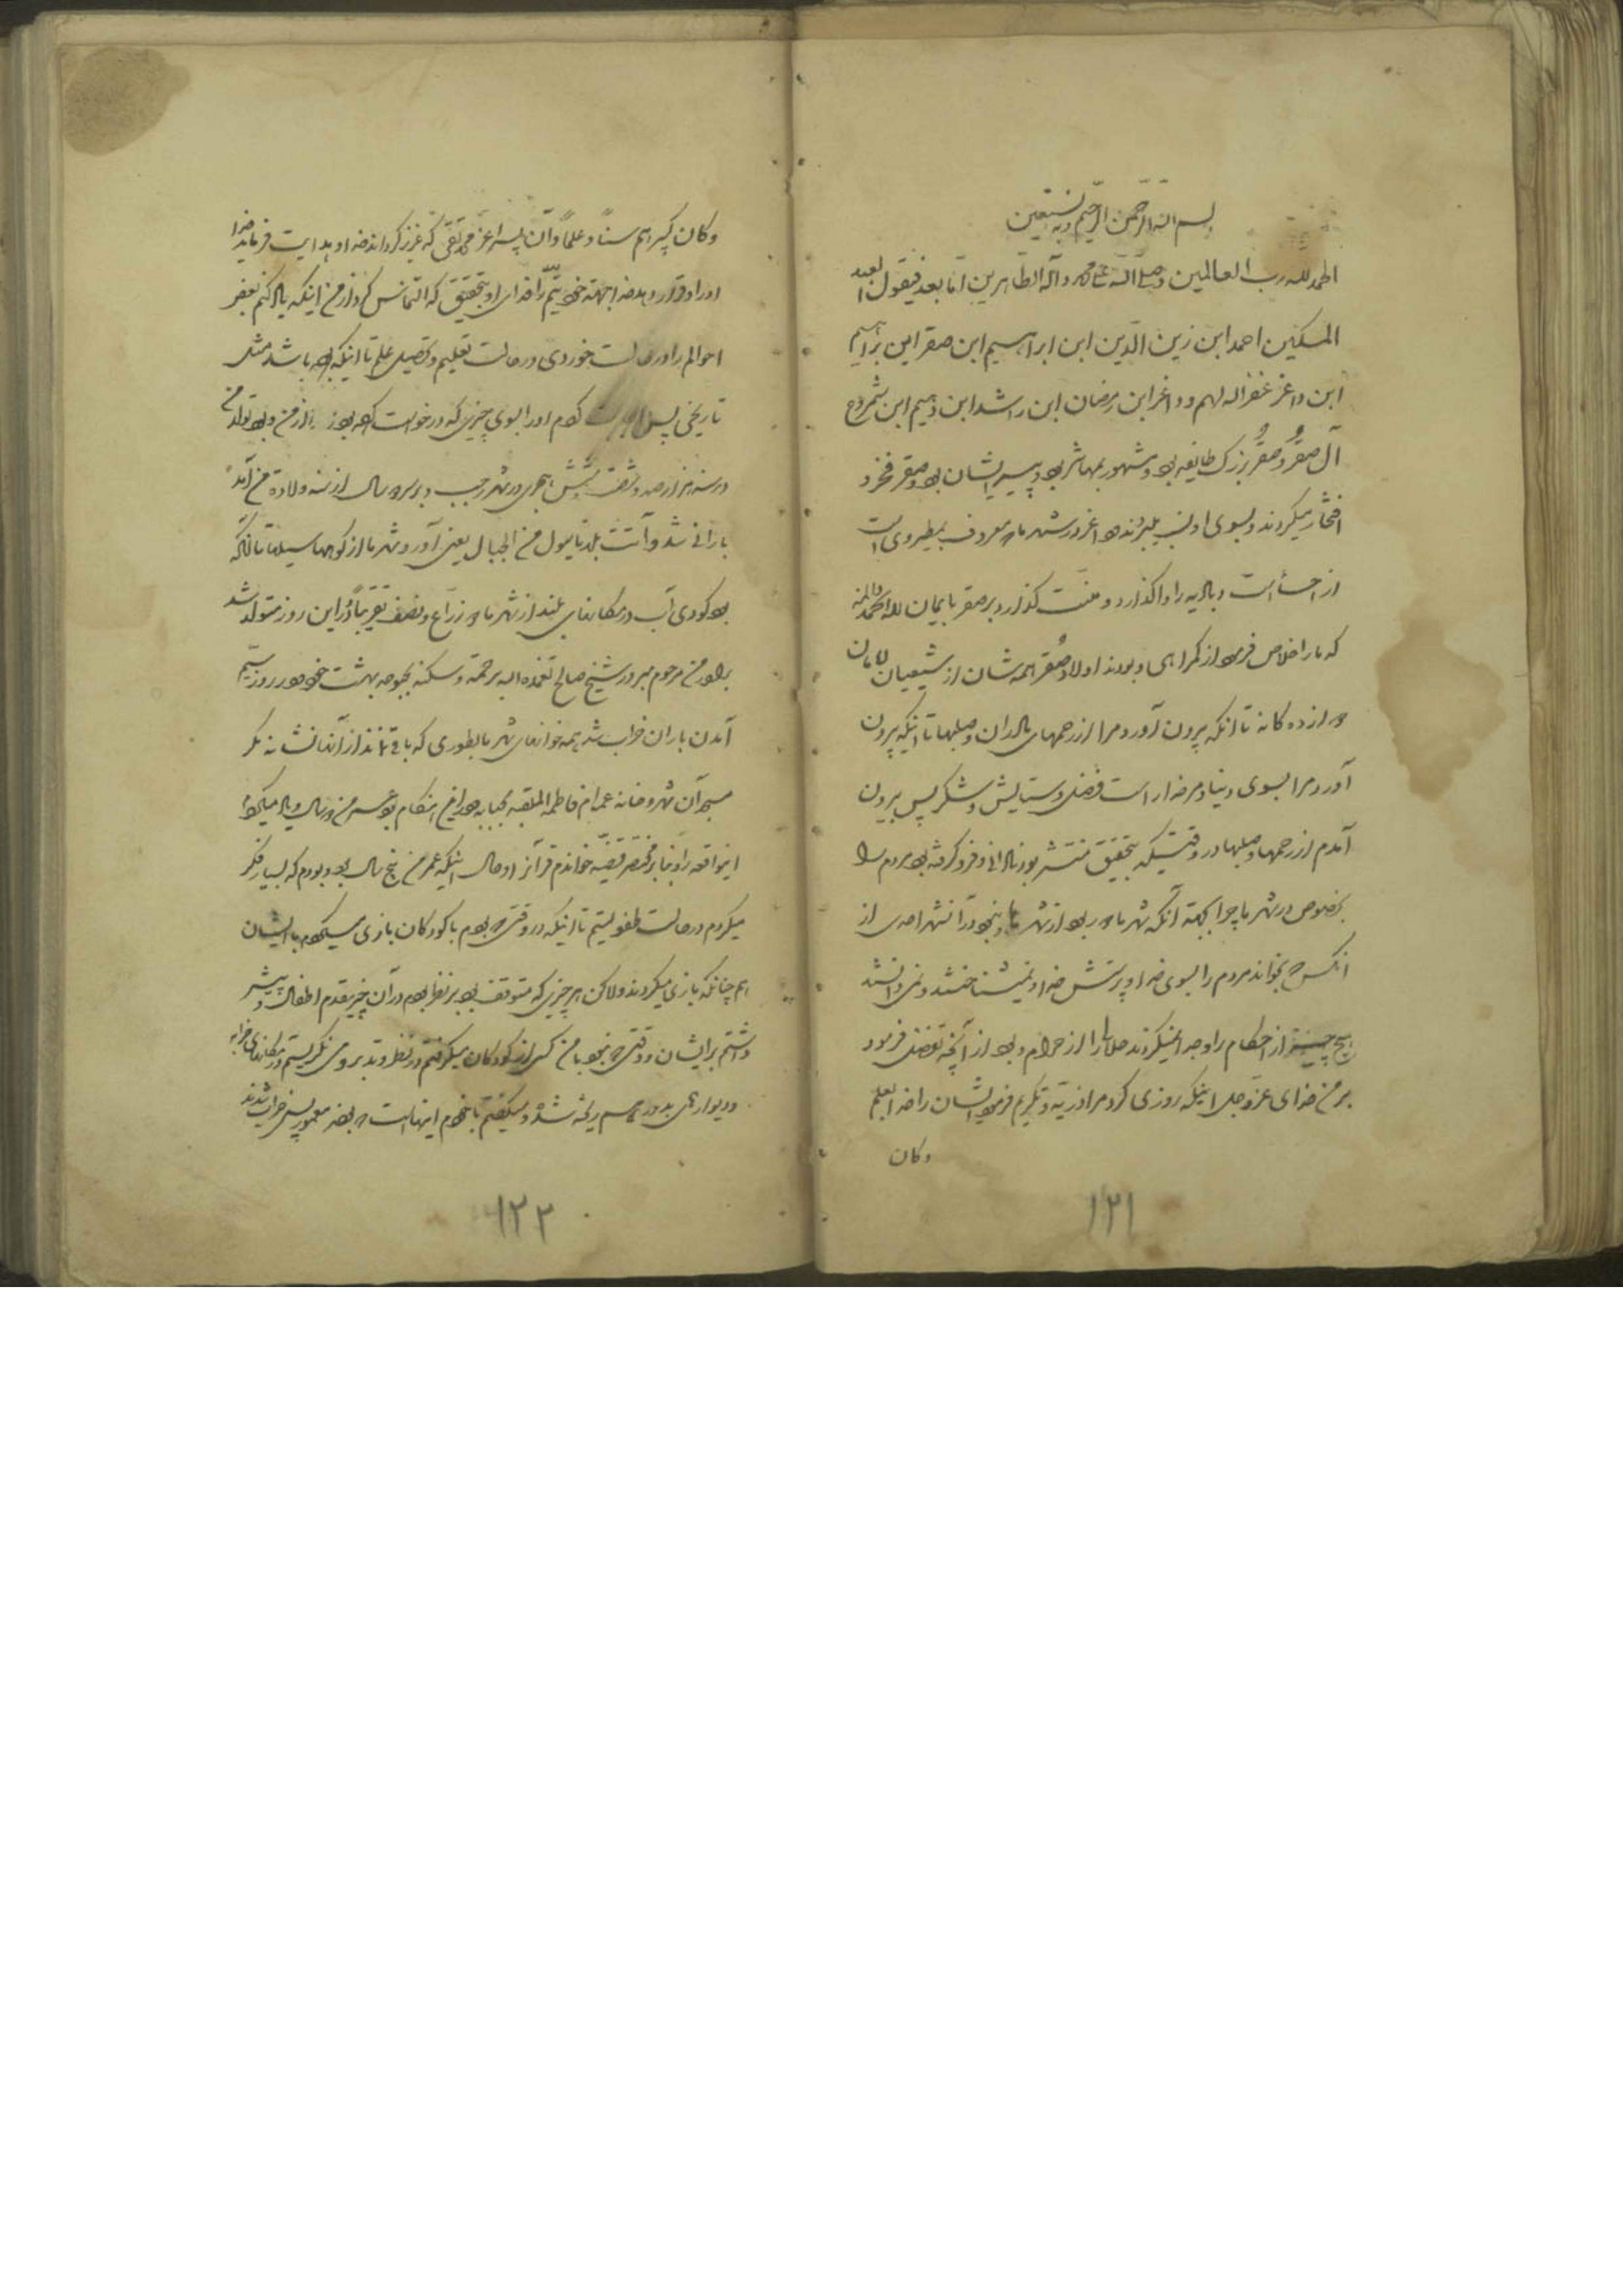 بسم الله الرحمن الرحیم وبه نستعین
الحمد لله رب العالمین و صلی الله علی محمد و آله الطاهرین اما بعد فیقول العبد
المسکین احمد ابن زین الدین ابن ابراهیم ابن صقر ابن براهیم
ابن داغر غفر الله لهم و داغر ابن رمضان ابن راشد ابن دهیم ابن شمروخ
آل صقر و صقر بزرک طایفه بود و مشهور بود و صقر فخر و
افتخار میکردند و بسوی او در شهر ما معروف بمطیرفی است
از احساء است و بادیه را واگذارد و منت گذارد بر صقر بایمان لله الحمد والمنه
که ما را خلاص فرمود از گمراهی و بودند اولاد صقر همه شان از شیعیان
دوازده گانه تا آنکه بیرون آورد مرا از رحمهای مادران و صلبها تا اینکه بیرون
آورد مرا بسوی دنیا و مر خدا را است فضل و ستایش و شکر پس بیرون
آمدم از رحمها و صلبها در وقتیکه بتحقیق منتشر بود نادانی و فرو گرفته بود مردم را
بخصوص در شهر ما چرا بجهة آنکه شهر ما و نبود در آنشهر احدی از
آنکس که بخواند مردم را بسوی خدا و پرستش خدا و نمیشناختند و نمی دانستند
هیچ چیز از احکام را و جدا نمیکردند حلال را از حرام و بود از آنچه تفضل فرمود
بر من خدای عز وجل اینکه روزی کرد مرا ذریه و تکریم فرمود ایشان را خدا بعلم
وکان
۱۲۱
وکان کبیرهم سناً و علماً و آن پسر اعز محمد تقی که عزیز گرداند خدا و هدایت فرماید خدا
او را و قرار دهد خدا بجهة خود را فدای او بتحقیق که التماس کرد از من اینکه یاد کنم بعض
احوالم را در حالت خوردی و در حالت تعلیم و تحصیل علم تا اینکه بوده باشد مثل
تاریخی پس او را بسوی چیزی که درخواست از من و بود تولد من
در سنه هزار و صد و شصت و شش هجری در شهر رجب و بر سر دو سال از سنه ولادة من آمد
بارانی شد و آتت بلدنا سیول من الجبال یعنی آورد شهر ما را از کوهها سیلها تا آنکه
بود گودی آب در مکانهای بلند از شهر ما ذراع و نصف تقریباً و در این روز متولد شد
برادر من مرحوم مبرور شیخ صالح تغمده الله برحمته و سکنه بحبوحه بهشت خود و در روز سیم
آمدن باران خراب شد همه خوانهای شهر ما بطوری که باقی نماند از آنها نشانه مگر
مسجد آن شهر و خانه عمه ام فاطمه الملقبه بحبابه و در این هنگام بود سن من دو سال و یاد میآورم
اینواقعه را و بنا بر مختصر قضیه خواندم قرآن را و حال اینکه عمر من پنج سال بود و بودم که بسیار فکر
میکردم در حالت طفولیتم تا اینکه در وقتی که بودم با کودکان بازی میکردم با ایشان
هم چنانکه بازی میکردند ولاکن هر چیزی که متوقف بود بر نظر بودم در آن چیز مقدم اطفال و پیشتر
داشتم بر ایشان و وقتی که نبود با من کسی از کودکان میگرفتم در نظر و تدبر و می نگریستم در مکانهای خرابه
و دیوارهای ریخته شده و میگفتم با خودم اینها است که بودند معمور پس خراب شدند
۱۲۲